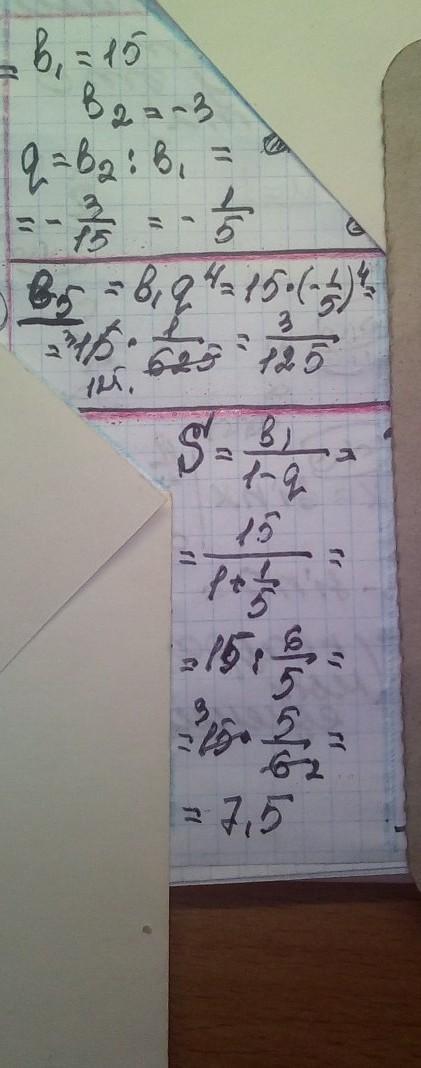 = b₁ = 15
b₂ = -3
q = b₂ : b₁ =
= - 3/15 = - 1/5
b₅ = b₁q⁴ = 15 · (-1/5)⁴ =
= ³15 · 1/625 = 3/125
125.
S = b₁/(1-q) =
= 15/(1+1/5) =
= 15 : 6/5 =
= ³15 · 5/6₂ =
= 7,5